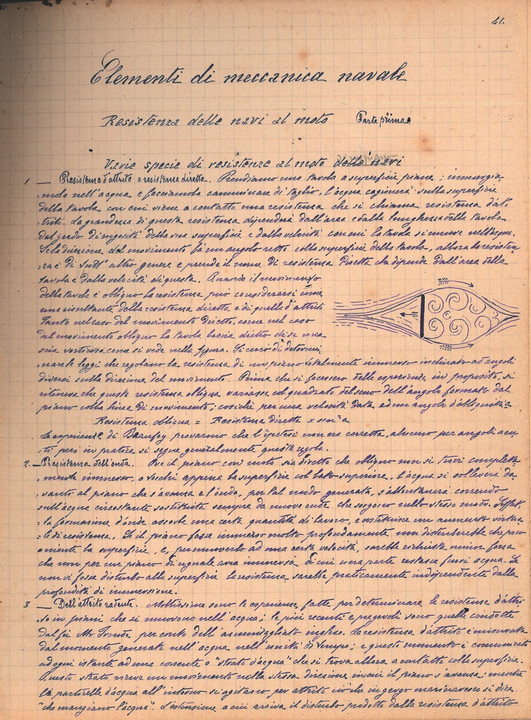 41.
Elementi di meccanica navale
Resistenza delle navi al moto Parte prima
Varie specie di resistenze al moto delle navi
1 — Resistenza d'attrito e resistenza diretta. Prendiamo una tavola a superficie piana; immergia-
mola nell'acqua, e facciamola camminare di taglio, l'acqua cagionerà sulla superficie
della tavola con cui viene a contatto una resistenza che si chiama resistenza d'at-
trito. La grandezza di questa resistenza dipenderà dall'area e dalla lunghezza della tavola
dal grado di asperità della sua superficie e dalla velocità con cui la tavola si muove nell'acqua.
Se la direzione del movimento fa un angolo retto colla superficie della tavola, allora la resisten-
za è di tutt'altro genere e prende il nome di resistenza diretta che dipende dall'area della
tavola e dalla velocità di questa. Quando il movimento
della tavola è obliquo la resistenza può considerarsi come
una risultante della resistenza diretta e di quella d'attrito
Tanto nel caso del movimento diretto, come nel caso
del movimento obliquo la tavola lascia dietro di se una
scia vorticosa come si vede nella figura. Si cercò di determi-
nare le leggi che regolano la resistenza di un piano totalmente immerso inclinato ad angoli
diversi sulla direzione del movimento. Prima che si facessero delle esperienze in proposito, si
riteneva che questa resistenza obliqua variasse col quadrato del seno dell'angolo formato dal
piano colla linea di movimento; cosicchè per una velocità data ad un angolo d'obliquità α
Resistenza obliqua = Resistenza diretta x sen²α
Le esperienze di provarono che l'ipotesi non era corretta, almeno per angoli acu-
ti però in pratica si segue generalmente questa regola
2 — Resistenza dell'onda. Ove il piano così moto, sia diretto che obliquo non si trovi completa-
mente immerso, o sfiori appena la superficie col lato superiore, l'acqua si solleverà da-
vanti al piano che s'avanza e l'onda, per tal modo generata, s'allontanerà correndo
sull'acqua circostante, sostituita sempre da nuove onde che seguono nello stesso modo.
la formazione d'onde assorbe una certa quantità di lavoro, e costituisce un aumento virtua-
le di resistenza. Se il piano fosse immerso molto profondamente non disturberebbe che poco
o niente la superficie, e, per muoverlo ad una certa velocità, sarebbe richiesta minor forza
che non per un piano di uguale area immersa, di cui una parte restasse fuori acqua. Se
non vi fosse disturbo alla superficie la resistenza sarebbe praticamente indipendente dalla
profondità di immersione.
3 — Dell'attrito radente. Moltissime sono le esperienze fatte per determinare la resistenza d'attri-
to in piani che si muovono nell'acqua; le più recenti e pregevoli sono quelle condotte
dal fu Mr Froude, per conto dell'ammiragliato inglese. La resistenza d'attrito è misurata
dal momento generato nell'acqua nell'unità di tempo; e questo momento è comunicato
ad ogni istante ad una corrente o "strato d'acqua" che si trova allora a contatto colla superficie.
Questo strato riceve un movimento nella stessa direzione in cui il piano s'avanza; mentre
le particelle d'acqua all'intorno si agitano per attrito ciò che in gergo marinaresco si dice
"che mangiano l'acqua". L'estensione a cui arriva il disturbo prodotto dalla resistenza d'attrito